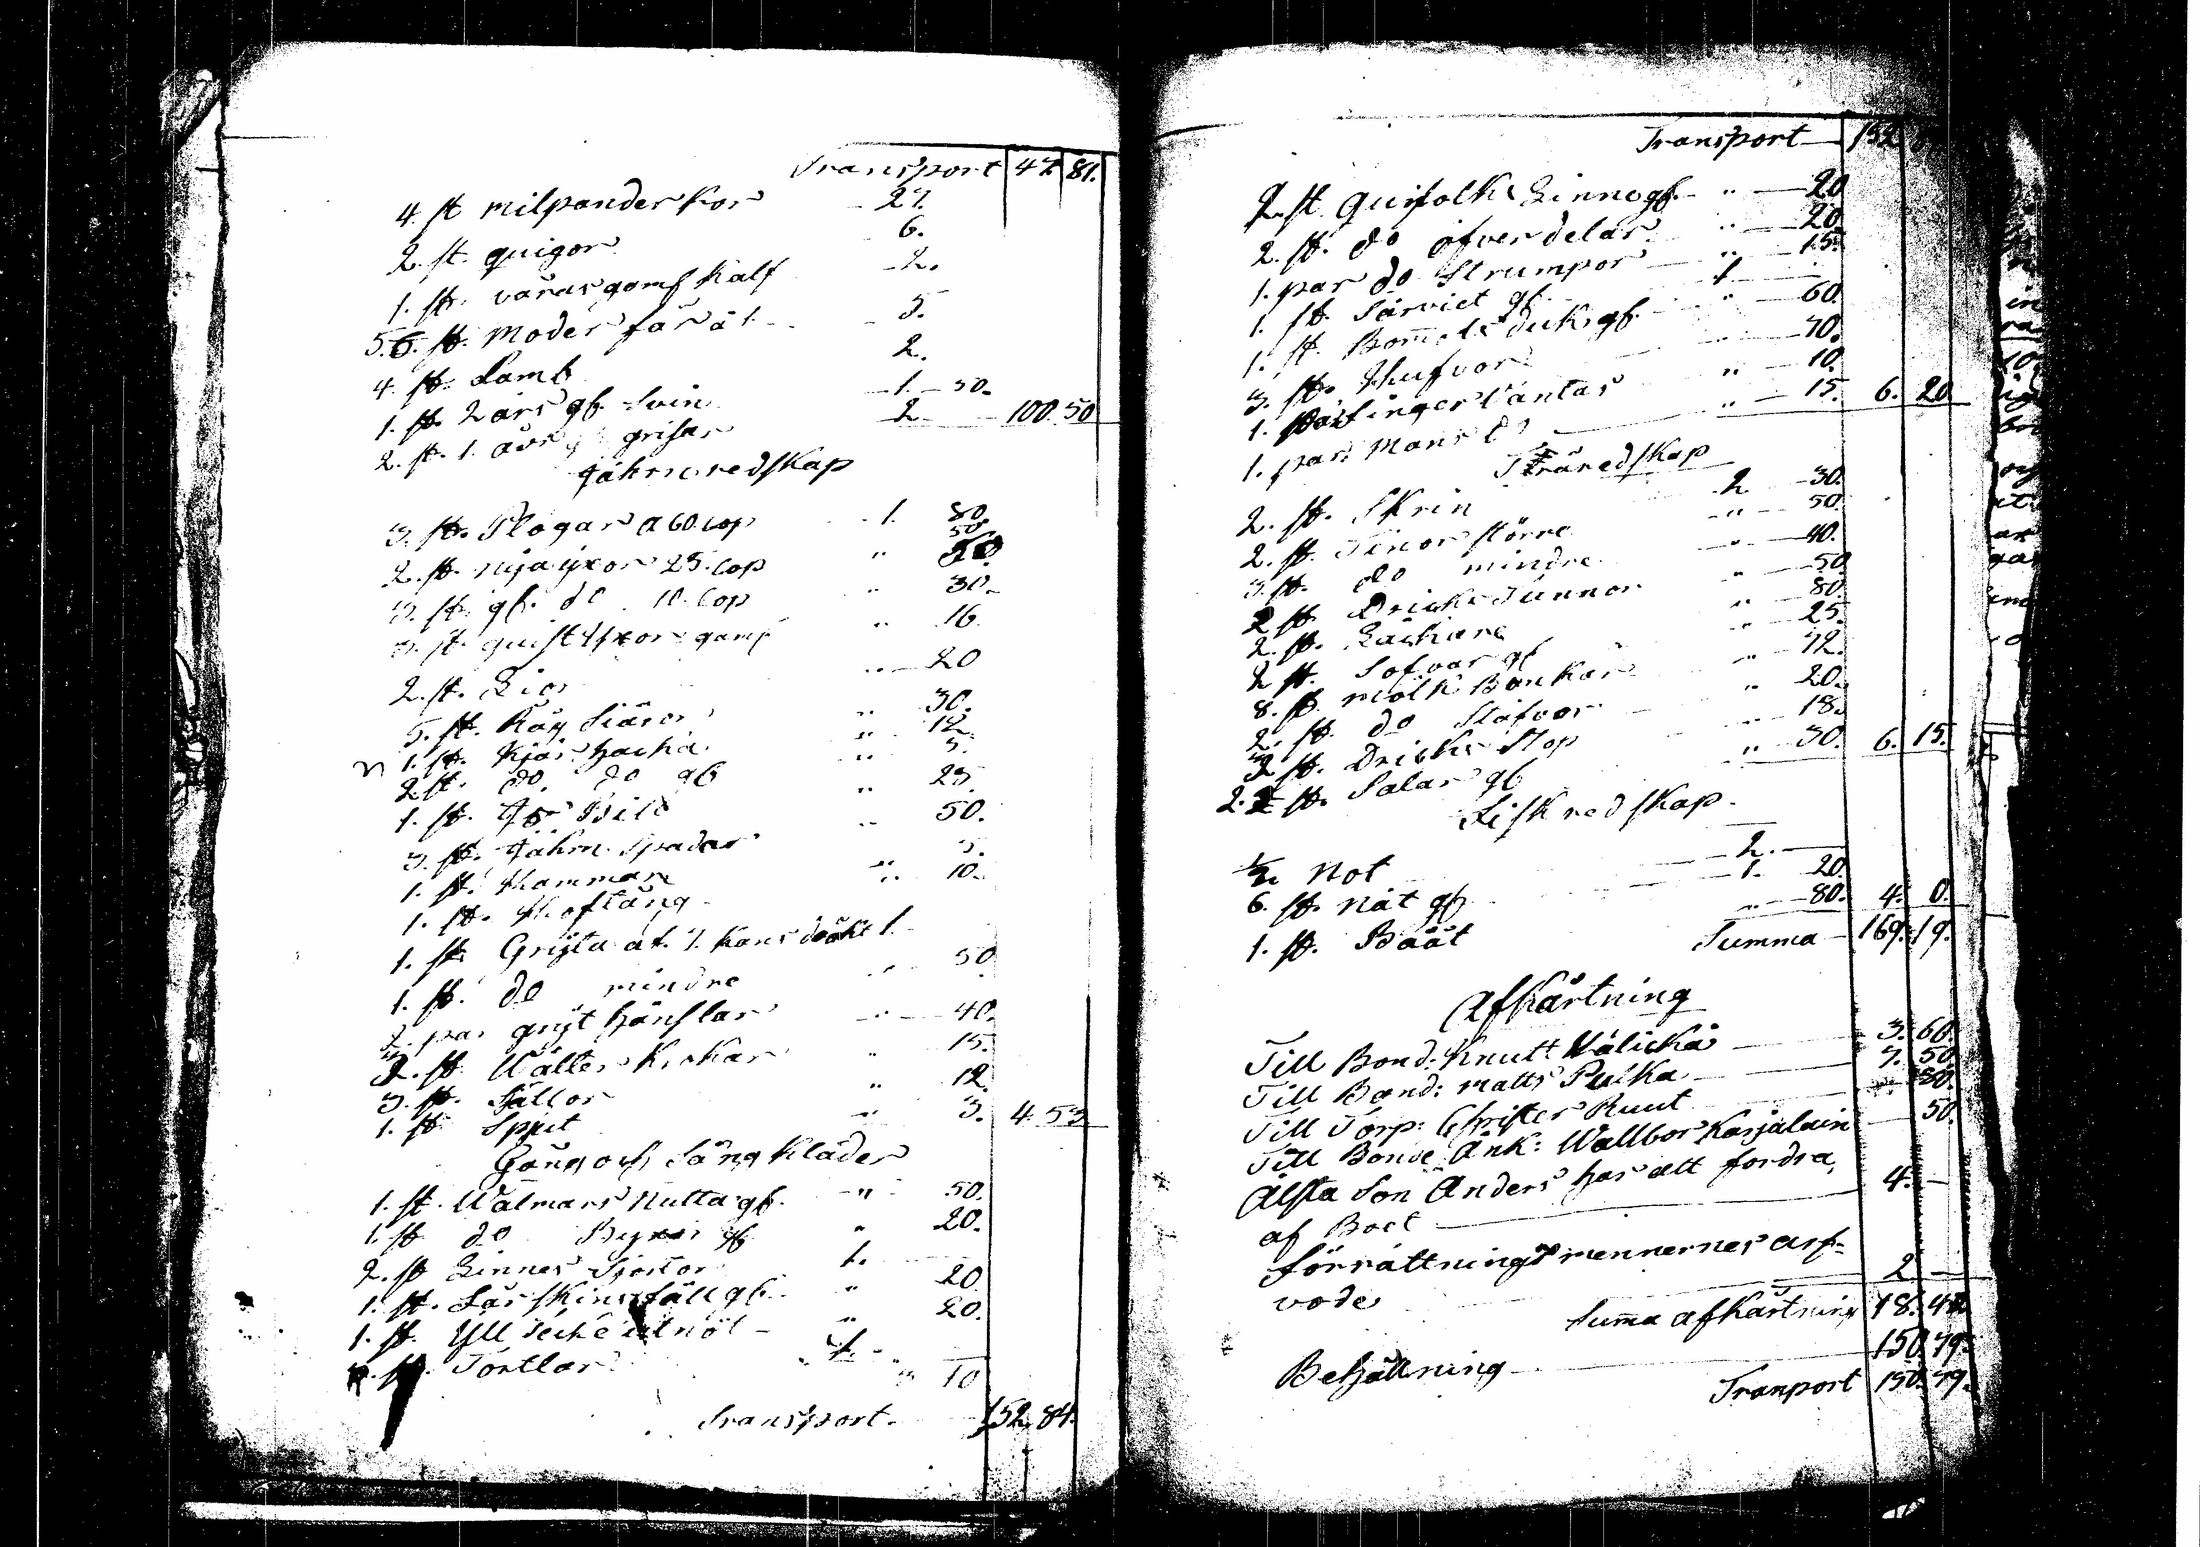 Transport 47 81.
4. st milpander Kor 27.
2. st. quigor 6.
1. st. våras gaml Kalf 2.
5. st. Moder får à 1. 5.
4 st. Lamb 2.
1. st. 2 års gl. Svin 1. 50.
2. st. 1. års grisar 2 100. 50
Jährnredskap
3. st. Plogar a 60. cop 1. 80.
2. st. nya yxor 25. cop " 50.
3. st. gl. do 10. Cop " 30.
st. quist yxor gaml " 16.
2. st. Liar " 20
5. st. Råg Siäror " 30.
1. st. Kjör hacka " 12.
2 st. do. do gl " 5.
1. st. Bill " 25.
3. st. Jährn Spadar " 50.
1. st. Hammare " 5.
1. st. Hoftång " 10.
1. st. Gryta af. 7. Kans dräkt 1.
1. st. do mindre " 50
2. par gryt hänslar " 40.
st. Wälter Krokar " 15.
3. st. Sållor " 12.
1. st. Spjut " 3. 4 53
Gång och Säng Kläder
1. st. Walmars Kulta gl. " 50.
1. st do Byxor gl " 20.
2. st Linnes Sjortor 1.
1. st. Fårskins fäll gl. " 20
1. st. Yll Tecke utnöt " 20.
st. Törtlar " 10
Transport. 152. 84.
Transport 152
2. st. quifolks Linne gl. " 20
2. st. do öfverdelar " 20.
1. par do Strumpor " 15.
1. st. Särviet gl. 1
1. st. Bomuls duk gl. " 60.
3. st. Hufvor " 70.
1. Par finger Vantar " 10.
1. par. Mans do " 15. 6. 20
Träredskap
2. st. Skrin 2 30.
2. st. Tinor större " 50.
3. st. do mindre " 40.
2 st. Dricks Tunnor " 50
2. st. " 80.
2 st. Sofvar gl " 25.
8. st. Mölk Bunkar " 72.
2. st. do Stäfvor " 20.
2 st. Dricks Stop " 18.
2. st. Salar gl " 30. 6. 15.
Fiskredskap
Not 2.
6. st. Nät gl 1. 20
1. st. Båät " 80. 4. 0.
Summa 169. 19.
Afkårtning
Till Bond. Knutt Wälickä 3. 60.
Till Bond: Matts Pulka 7. 50
Till Torp: Christer Ruut 80.
Till Bonde Änk: Wallbor Karjalain 50.
Älsta Son Anders har att fordra,
af Boet 4.
förrättningsmennernes arf=
vode 2
Summa afkårtning 18. 40.
Behållning 150. 79.
Tranport 150. 79.